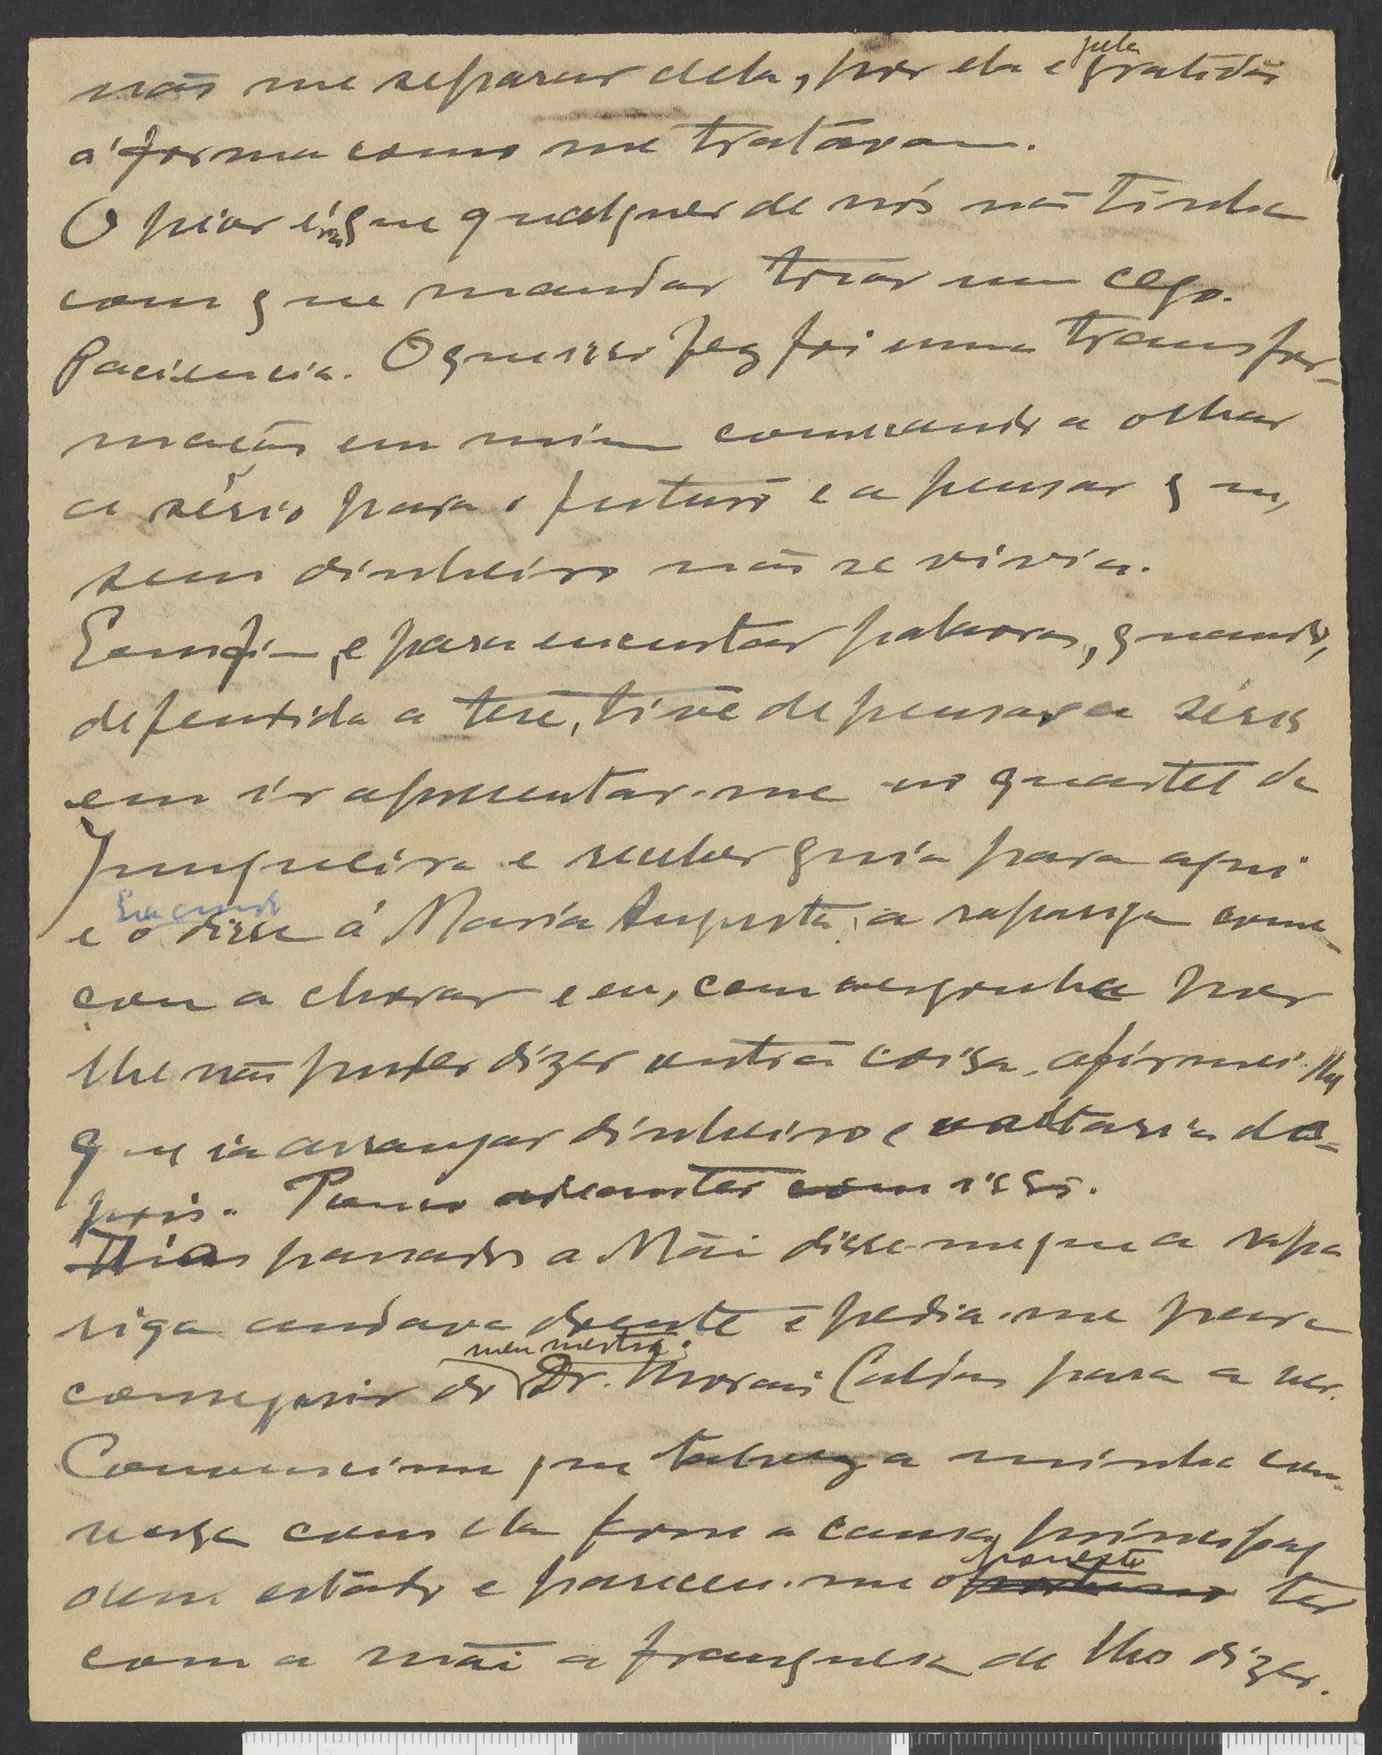 não me separar dela, por ela e pela gratidão
á forma como me tratavam.
O pior é que qualquer de nós não tinha
com que mandar tocar um cego.
Paciencia. O que isso fez foi uma transfor-
mação em mim começando a olhar
a sério para o futuro e a pensar que,
sem dinheiro não se vivia.
Emfim, e para encurtar palavras, quando,
defendida a tese, tive de pensar a sério
em ir apresentar-me no quartel da
Junqueira e receber guia para aqui
e o disse á Maria Augusta, a rapariga come-
çou a chorar e eu, com vergonha por
lhe não poder dizer outra coisa, afirmei-lhe
que ia arranjar dinheiro e voltaria de-
pois. Pouco adeantei com isso.
Dias passados a Mãi disse-me que a rapa
riga andava doente e pedia-me para
conseguir do meu mestre Dr. Morais Caldas para a ver.
Convenci-me que talvez a minha con-
versa com ela fosse a causa principal
desse estado e pareceu-me honesto ter
com a mãi a franqueza de lho dizer.